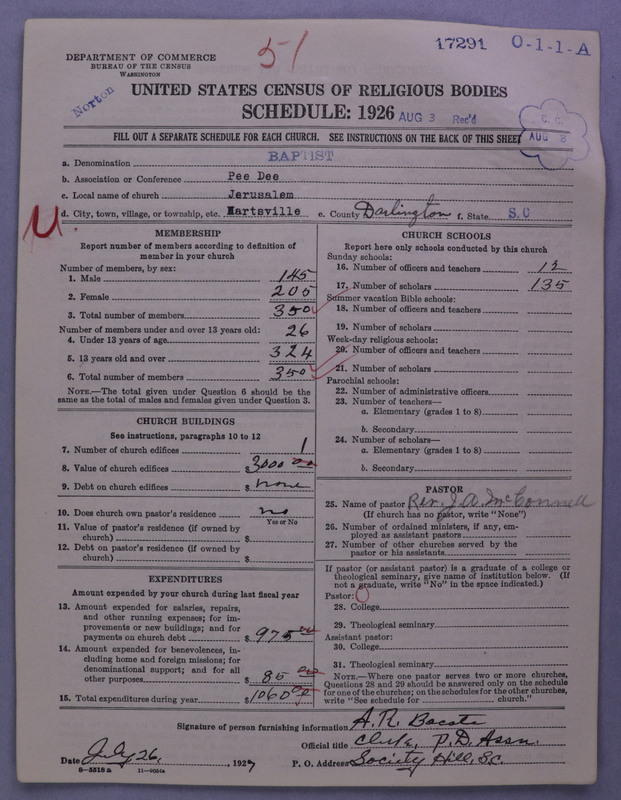 51
17291 O-1-1-A
DEPARTMENT OF COMMERCE
BUREAU OF THE CENSUS
WASHINGTON
Norton
UNITED STATES CENSUS OF RELIGIOUS BODIES
SCHEDULE: 1926
AUG 3 Rec'd
AUG 3
FILL OUT A SEPARATE SCHEDULE FOR EACH CHURCH. SEE INSTRUCTIONS ON THE BACK OF THIS SHEET
a. Denomination BAPTIST
b. Association or Conference Pee Dee
c. Local name of church Jerusalem
d. City, town, village, or township, etc. Hartsville e. County Darlington f. State S.C
MEMBERSHIP
Report number of members according to definition of
member in your church
Number of members, by sex:
1. Male 145
2. Female 205
3. Total number of members 350
Number of members under and over 13 years old:
4. Under 13 years of age 26
5. 13 years old and over 324
6. Total number of members 350
NOTE.—The total given under Question 6 should be the
same as the total of males and females given under Question 3.
CHURCH BUILDINGS
See instructions, paragraphs 10 to 12
7. Number of church edifices 1
8. Value of church edifices $3000 00
9. Debt on church edifices $ none
10. Does church own pastor's residence no
Yes or No
11. Value of pastor's residence (if owned by
church) $
12. Debt on pastor's residence (if owned by
church) $
EXPENDITURES
Amount expended by your church during last fiscal year
13. Amount expended for salaries, repairs,
and other running expenses; for im-
provements or new buildings; and for
payments on church debt $975 00
14. Amount expended for benevolences, in-
cluding home and foreign missions; for
denominational support; and for all
other purposes $ 85 00
15. Total expenditures during year $1060 00
CHURCH SCHOOLS
Report here only schools conducted by this church
Sunday schools:
16. Number of officers and teachers 12
17. Number of scholars 135
Summer vacation Bible schools:
18. Number of officers and teachers
19. Number of scholars
Week-day religious schools:
20. Number of officers and teachers
21. Number of scholars
Parochial schools:
22. Number of administrative officers
23. Number of teachers—
a. Elementary (grades 1 to 8)
b. Secondary
24. Number of scholars—
a. Elementary (grades 1 to 8)
b. Secondary
PASTOR
25. Name of pastor Rev. J. A. McConnell
(If church has no pastor, write "None")
26. Number of ordained ministers, if any, em-
ployed as assistant pastors
27. Number of other churches served by the
pastor or his assistants
If pastor (or assistant pastor) is a graduate of a college or
theological seminary, give name of institution below. (If
not a graduate, write "No" in the space indicated.)
Pastor:
28. College
29. Theological seminary
Assistant pastor:
30. College
31. Theological seminary
NOTE.—Where one pastor serves two or more churches,
Questions 28 and 29 should be answered only on the schedule
for one of the churches; on the schedules for the other churches,
write "See schedule for church."
Signature of person furnishing information A. R. Bacote
Official title Clerk, P.D. Assn.
Date July 26, 1927 P. O. Address Society Hill, S.C.
8-5518 a 11-9054a